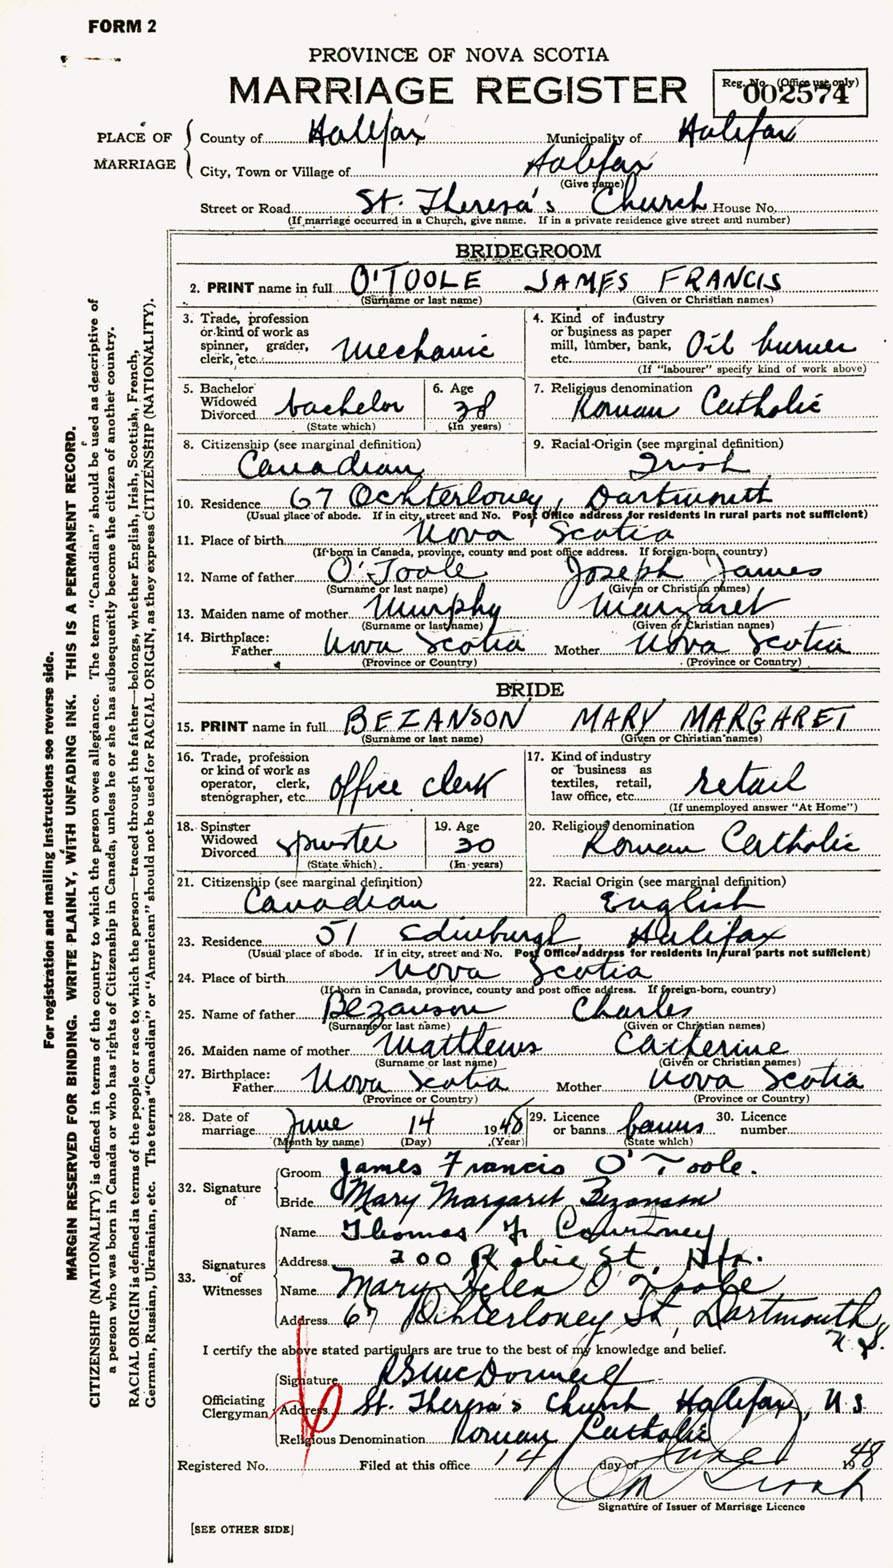 FORM 2
PROVINCE OF NOVA SCOTIA
MARRIAGE REGISTER
Reg. No. (Office use only)
002574
PLACE OF MARRIAGE
County of Halifax Municipality of Halifax
City, Town or Village of Halifax
(Give name)
Street or Road St. Theresa's Church House No.
(If marriage occurred in a Church, give name. If in a private residence give street and number)
BRIDEGROOM
2. PRINT name in full O'TOOLE JAMES FRANCIS
(Surname or last name) (Given or Christian names)
3. Trade, profession or kind of work as spinner, grader, clerk, etc. Mechanic
4. Kind of industry or business as paper mill, lumber, bank, etc. Oil burner
(If "labourer" specify kind of work above)
5. Bachelor Widowed Divorced bachelor
(State which)
6. Age 38
(In years)
7. Religious denomination Roman Catholic
8. Citizenship (see marginal definition) Canadian
9. Racial-Origin (see marginal definition) Irish
10. Residence 67 Ochterloney, Dartmouth
(Usual place of abode. If in city, street and No. Post Office address for residents in rural parts not sufficient)
11. Place of birth Nova Scotia
(If born in Canada, province, county and post office address. If foreign-born, country)
12. Name of father O'Toole Joseph James
(Surname or last name) (Given or Christian names)
13. Maiden name of mother Murphy Margaret
(Surname or last name) (Given or Christian names)
14. Birthplace: Father Nova Scotia Mother Nova Scotia
(Province or Country) (Province or Country)
BRIDE
15. PRINT name in full BEZANSON MARY MARGARET
(Surname or last name) (Given or Christian names)
16. Trade, profession or kind of work as operator, clerk, stenographer, etc. office clerk
17. Kind of industry or business as textiles, retail, law office, etc. retail
(If unemployed answer "At Home")
18. Spinster Widowed Divorced spinster
(State which)
19. Age 30
(In years)
20. Religious denomination Roman Catholic
21. Citizenship (see marginal definition) Canadian
22. Racial Origin (see marginal definition) English
23. Residence 51 Edinburgh Halifax
(Usual place of abode. If in city, street and No. Post Office address for residents in rural parts not sufficient)
24. Place of birth Nova Scotia
(If born in Canada, province, county and post office address. If foreign-born, country)
25. Name of father Bezanson Charles
(Surname or last name) (Given or Christian names)
26. Maiden name of mother Matthews Catherine
(Surname or last name) (Given or Christian names)
27. Birthplace: Father Nova Scotia Mother Nova Scotia
(Province or Country) (Province or Country)
28. Date of marriage June 14 1948
(Month by name) (Day) (Year)
29. Licence or banns banns
(State which)
30. Licence number
32. Signature of
Groom James Francis O'Toole.
Bride Mary Margaret Bezanson
33. Signatures of Witnesses
Name Thomas J. Courtney
Address 200 Robie St, Hfx.
Name Mary Helen O'Toole
Address 67 Ochterloney St, Dartmouth N.S.
I certify the above stated particulars are true to the best of my knowledge and belief.
Officiating Clergyman
Signature McDonnell
Address St. Theresa's Church Halifax, N.S.
Religious Denomination Roman Catholic
Registered No. Filed at this office 14 day of June 1948
Signature of Issuer of Marriage Licence
[SEE OTHER SIDE]
For registration and mailing instructions see reverse side.
MARGIN RESERVED FOR BINDING. WRITE PLAINLY, WITH UNFADING INK. THIS IS A PERMANENT RECORD.
CITIZENSHIP (NATIONALITY) is defined in terms of the country to which the person owes allegiance. The term "Canadian" should be used as descriptive of
a person who was born in Canada or who has rights of Citizenship in Canada, unless he or she has subsequently become the citizen of another country.
RACIAL ORIGIN is defined in terms of the people or race to which the person—traced through the father—belongs, whether English, Irish, Scottish, French,
German, Russian, Ukrainian, etc. The terms "Canadian" or "American" should not be used for RACIAL ORIGIN, as they express CITIZENSHIP (NATIONALITY).